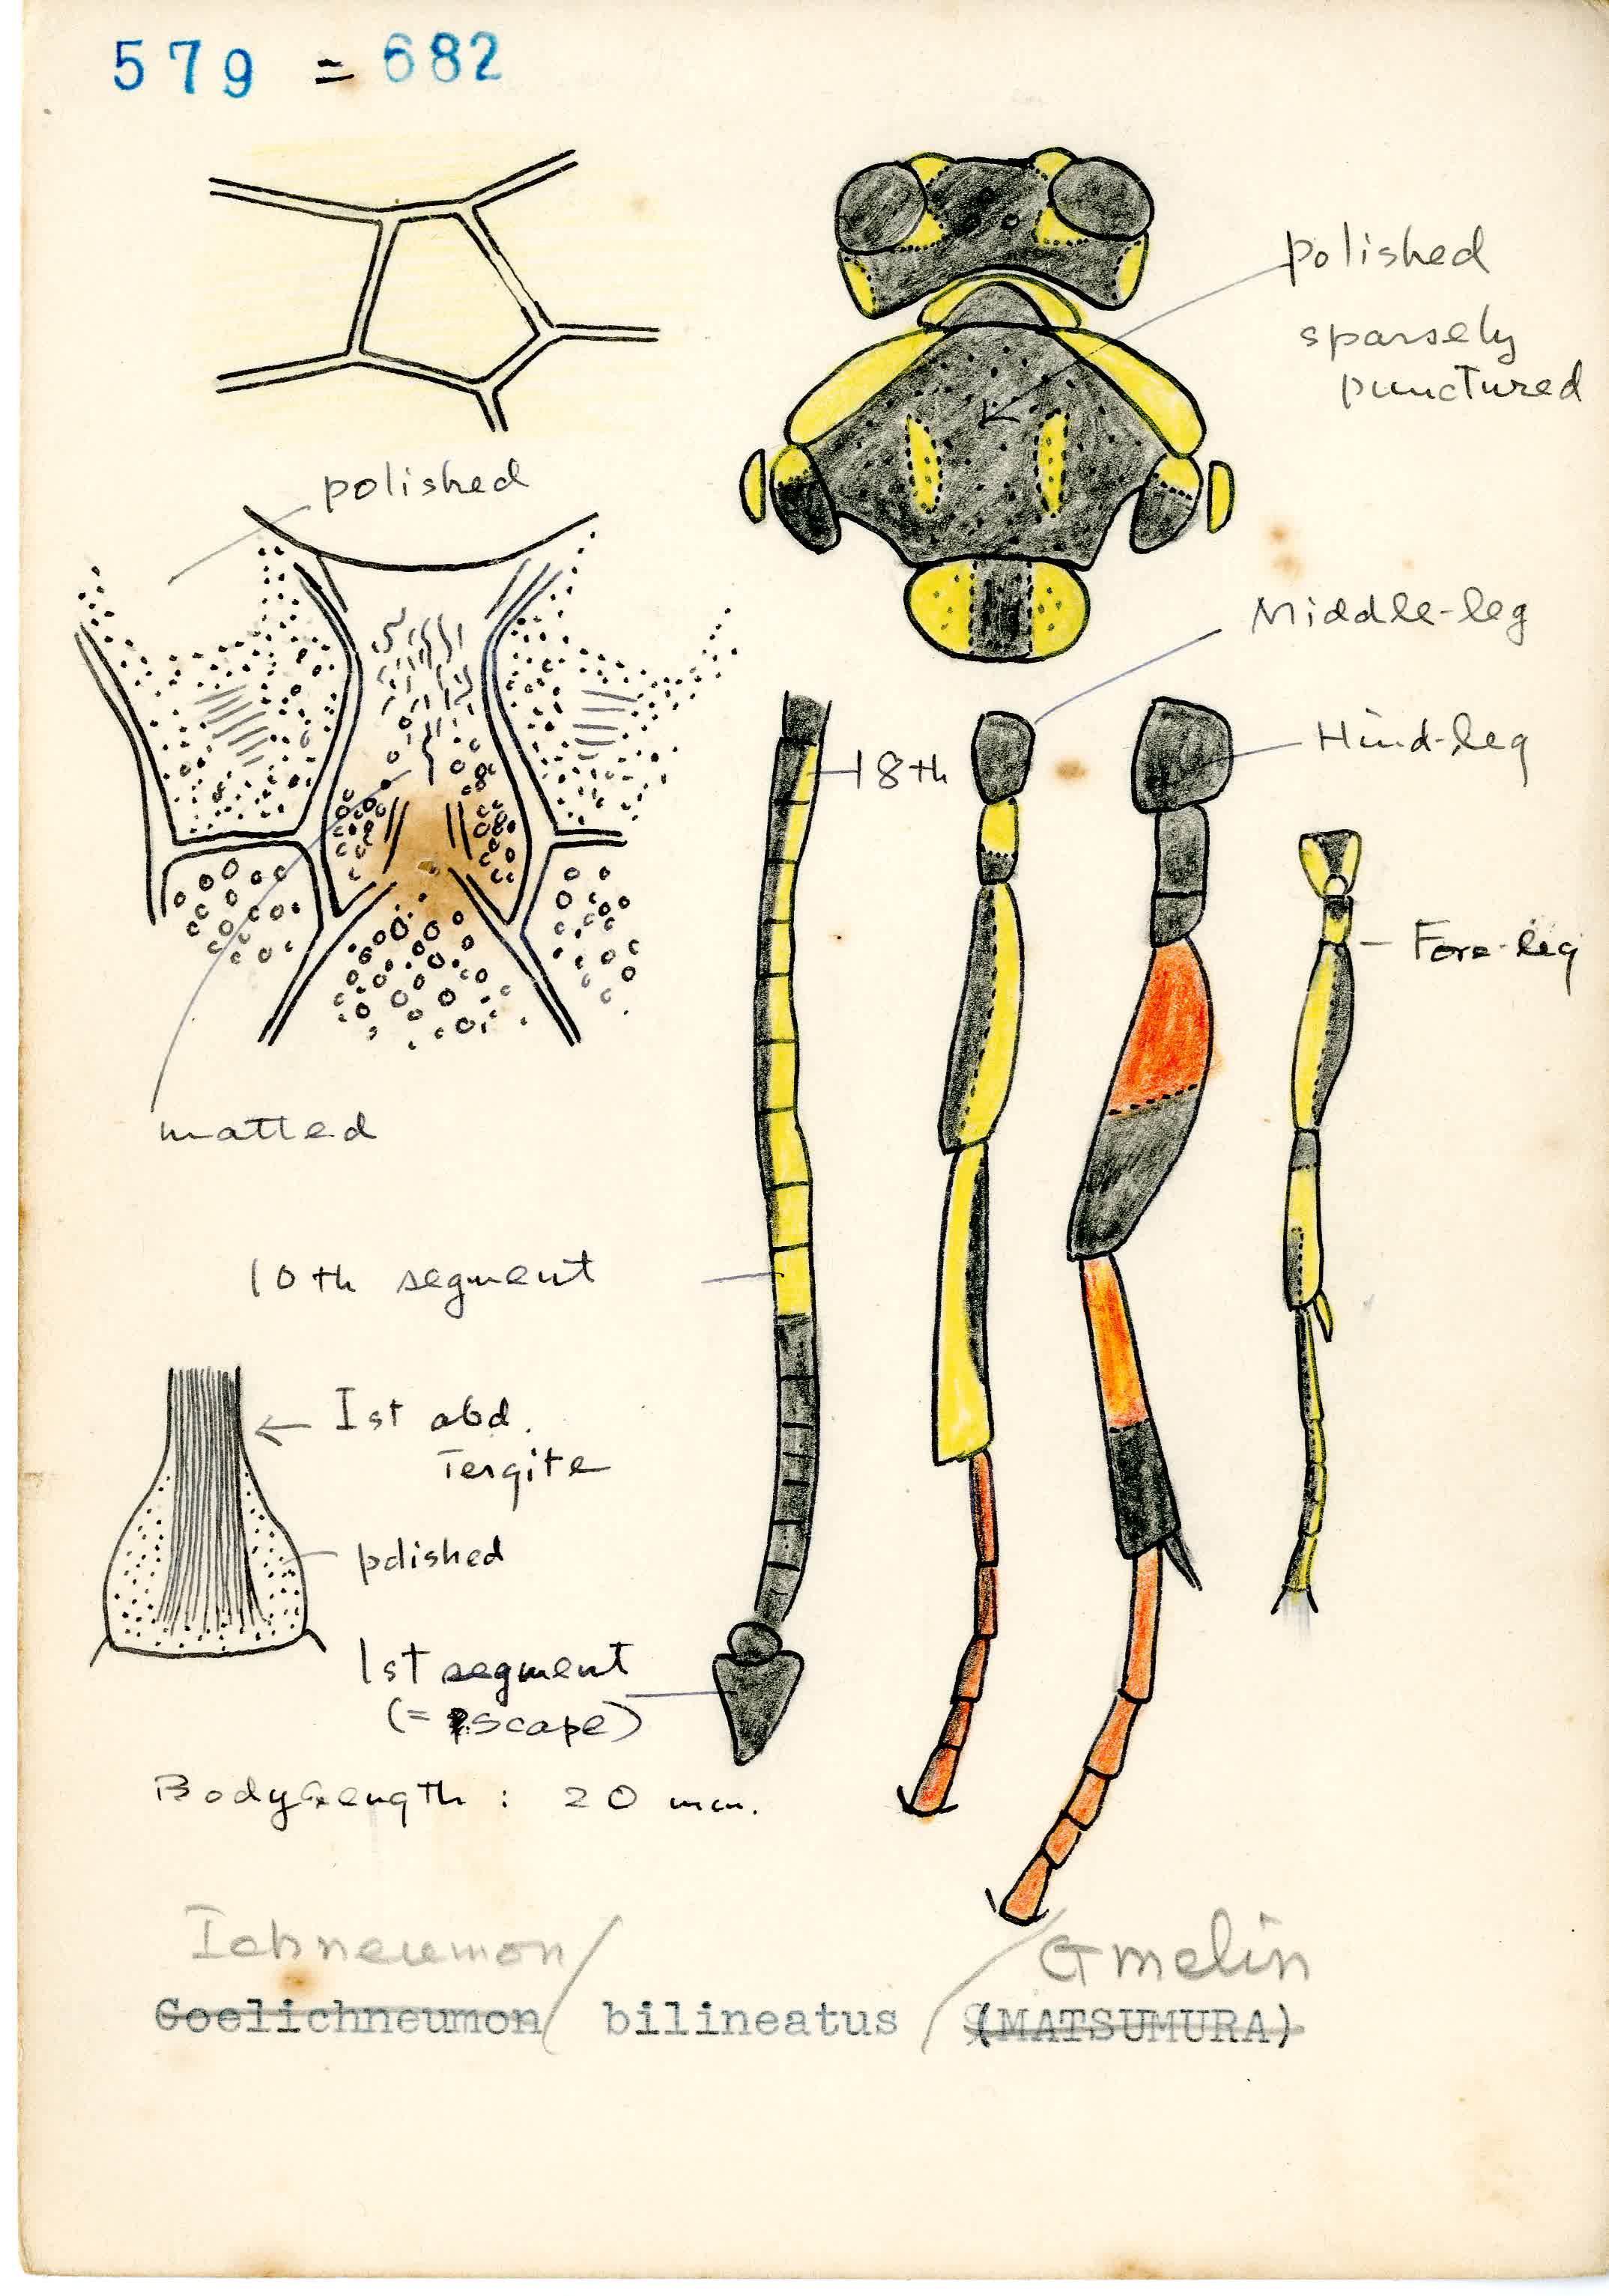 579 = 682
polished
sparsely
punctured
polished
Middle-leg
Hind-leg
18th
Fore-leg
matted
10th segment
Ist abd.
Tergite
polished
1st segment
(= scape)
Body length : 20 mm.
Ichneumon/ Gmelin
Coelichneumon/ bilineatus / (MATSUMURA)